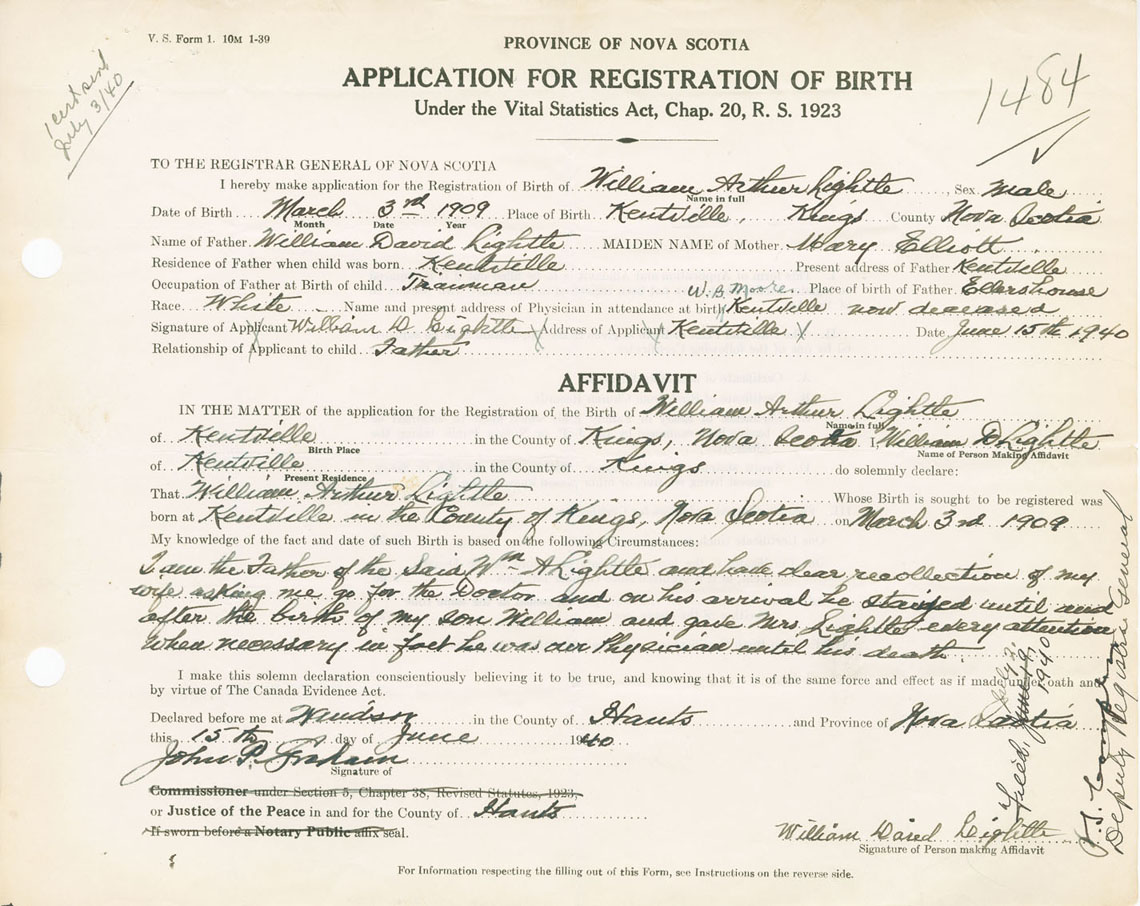 V. S. Form 1. 10M 1-39
1 cert sent
July 3/40
PROVINCE OF NOVA SCOTIA
APPLICATION FOR REGISTRATION OF BIRTH
Under the Vital Statistics Act, Chap. 20, R. S. 1923
1484
TO THE REGISTRAR GENERAL OF NOVA SCOTIA
I hereby make application for the Registration of Birth of William Arthur Lightle, Sex male
Name in full
Date of Birth March 3rd 1909 Place of Birth Kentville, Kings County Nova Scotia
Month Date Year
Name of Father William David Lightle MAIDEN NAME of Mother Mary Elliott
Residence of Father when child was born Kentville Present address of Father Kentville
Occupation of Father at Birth of child Trainman Place of birth of Father Ellershouse
W. B. Moore
Race White Name and present address of Physician in attendance at birth Kentville now deceased
Signature of Applicant William D. Lightle Address of Applicant Kentville Date June 15th 1940
Relationship of Applicant to child Father
AFFIDAVIT
IN THE MATTER of the application for the Registration of the Birth of William Arthur Lightle
Name in full
of Kentville in the County of Kings, Nova Scotia I, William D Lightle
Birth Place Name of Person Making Affidavit
of Kentville in the County of Kings do solemnly declare:
Present Residence
That William Arthur Lightle Whose Birth is sought to be registered was
born at Kentville in the County of Kings, Nova Scotia on March 3rd 1909
My knowledge of the fact and date of such Birth is based on the following Circumstances:
I am the Father of the Said Wm A Lightle and have clear recollection of my
wife asking me go for the Doctor and on his arrival he stayed until and
after the birth of my son William and gave Mrs Lightle every attention
when necessary in fact he was our Physician until his death.
I make this solemn declaration conscientiously believing it to be true, and knowing that it is of the same force and effect as if made under oath and
by virtue of The Canada Evidence Act.
Declared before me at Windsor in the County of Hants and Province of Nova Scotia
this 15th day of June 1940
John P.
Signature of
Commissioner under Section 5, Chapter 38, Revised Statutes, 1923,
or Justice of the Peace in and for the County of Hants
If sworn before a Notary Public affix seal.
William David Lightle
Signature of Person making Affidavit
For Information respecting the filling out of this Form, see Instructions on the reverse side.
Filed July 2, 1940
Deputy Registrar General